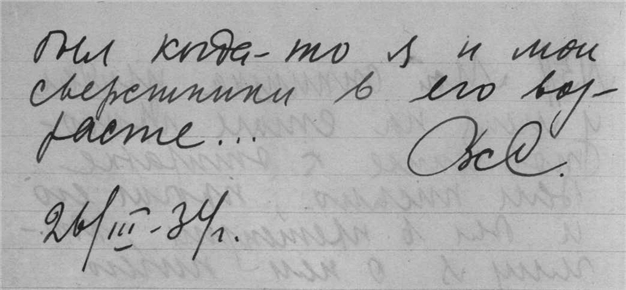 был когда-то я и мои
сверстники в его воз-
расте...
26/III-34г.